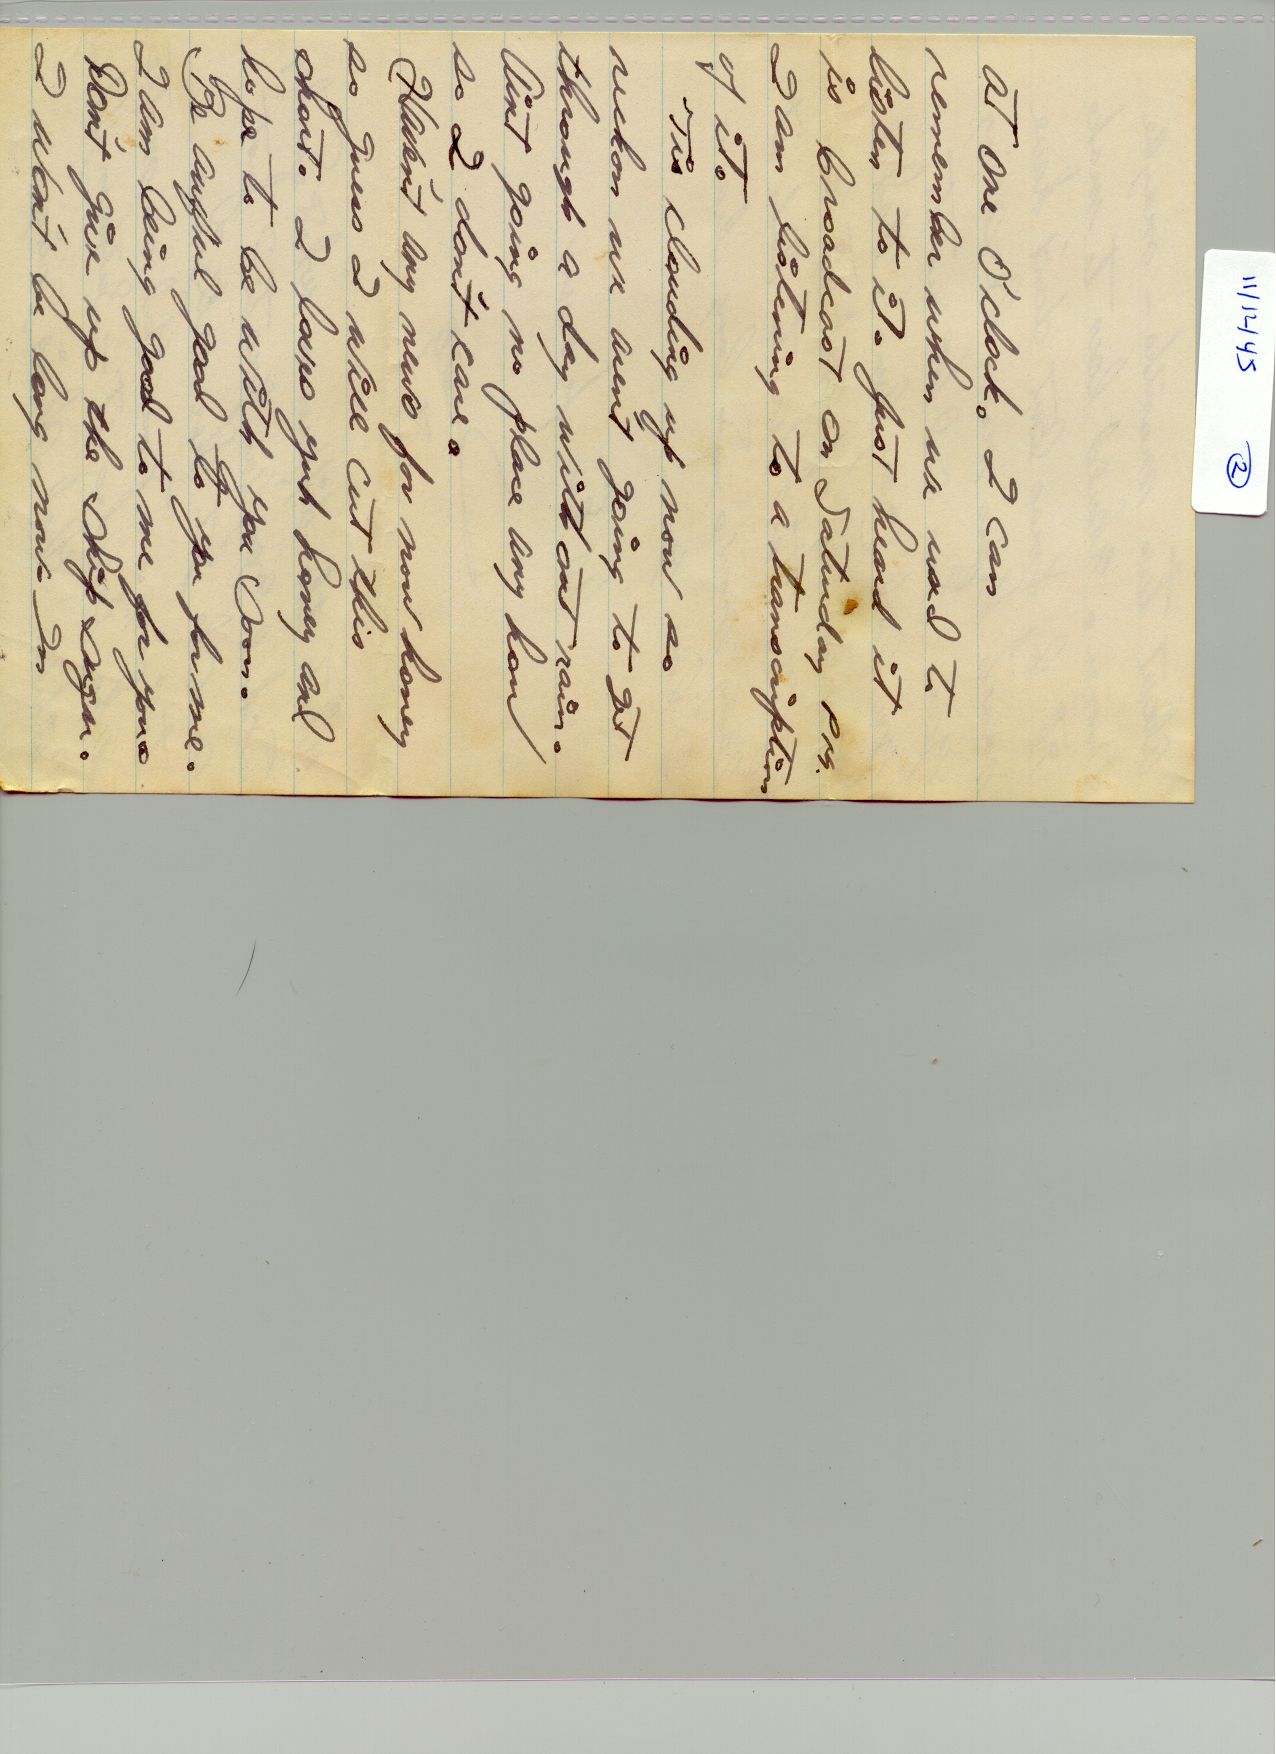 11/12/45 ②
at one O'clock. I can
remember when we used to
listen to it. Just heard it
is broadcast on Saturday P.M.
I am listening to a transcription
of it.
Tis clouding up now so
reckon we aint going to get
through a day without rain.
Aint going no place any how
so I don't care.
Haven't any news for now honey
so guess I will cut this
short. I love you honey and
hope to be with you soon.
Be awful good to you for me.
I am being good to me for you.
Don't give up the Ship Sugar.
I won't be long now. Im